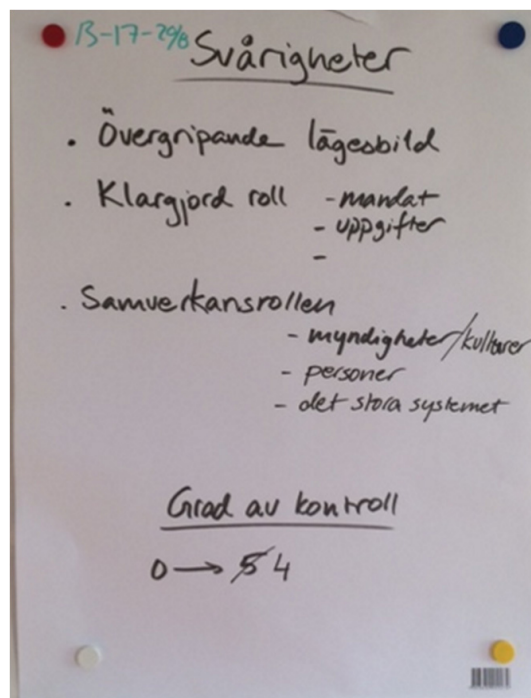 B-17-29/8
Svårigheter
. Övergripande lägesbild
. Klargjord roll - mandat
- uppgifter
-
. Samverkansrollen
- myndigheter/kulturer
- personer
- det stora systemet
Grad av kontroll
0 → 5 4